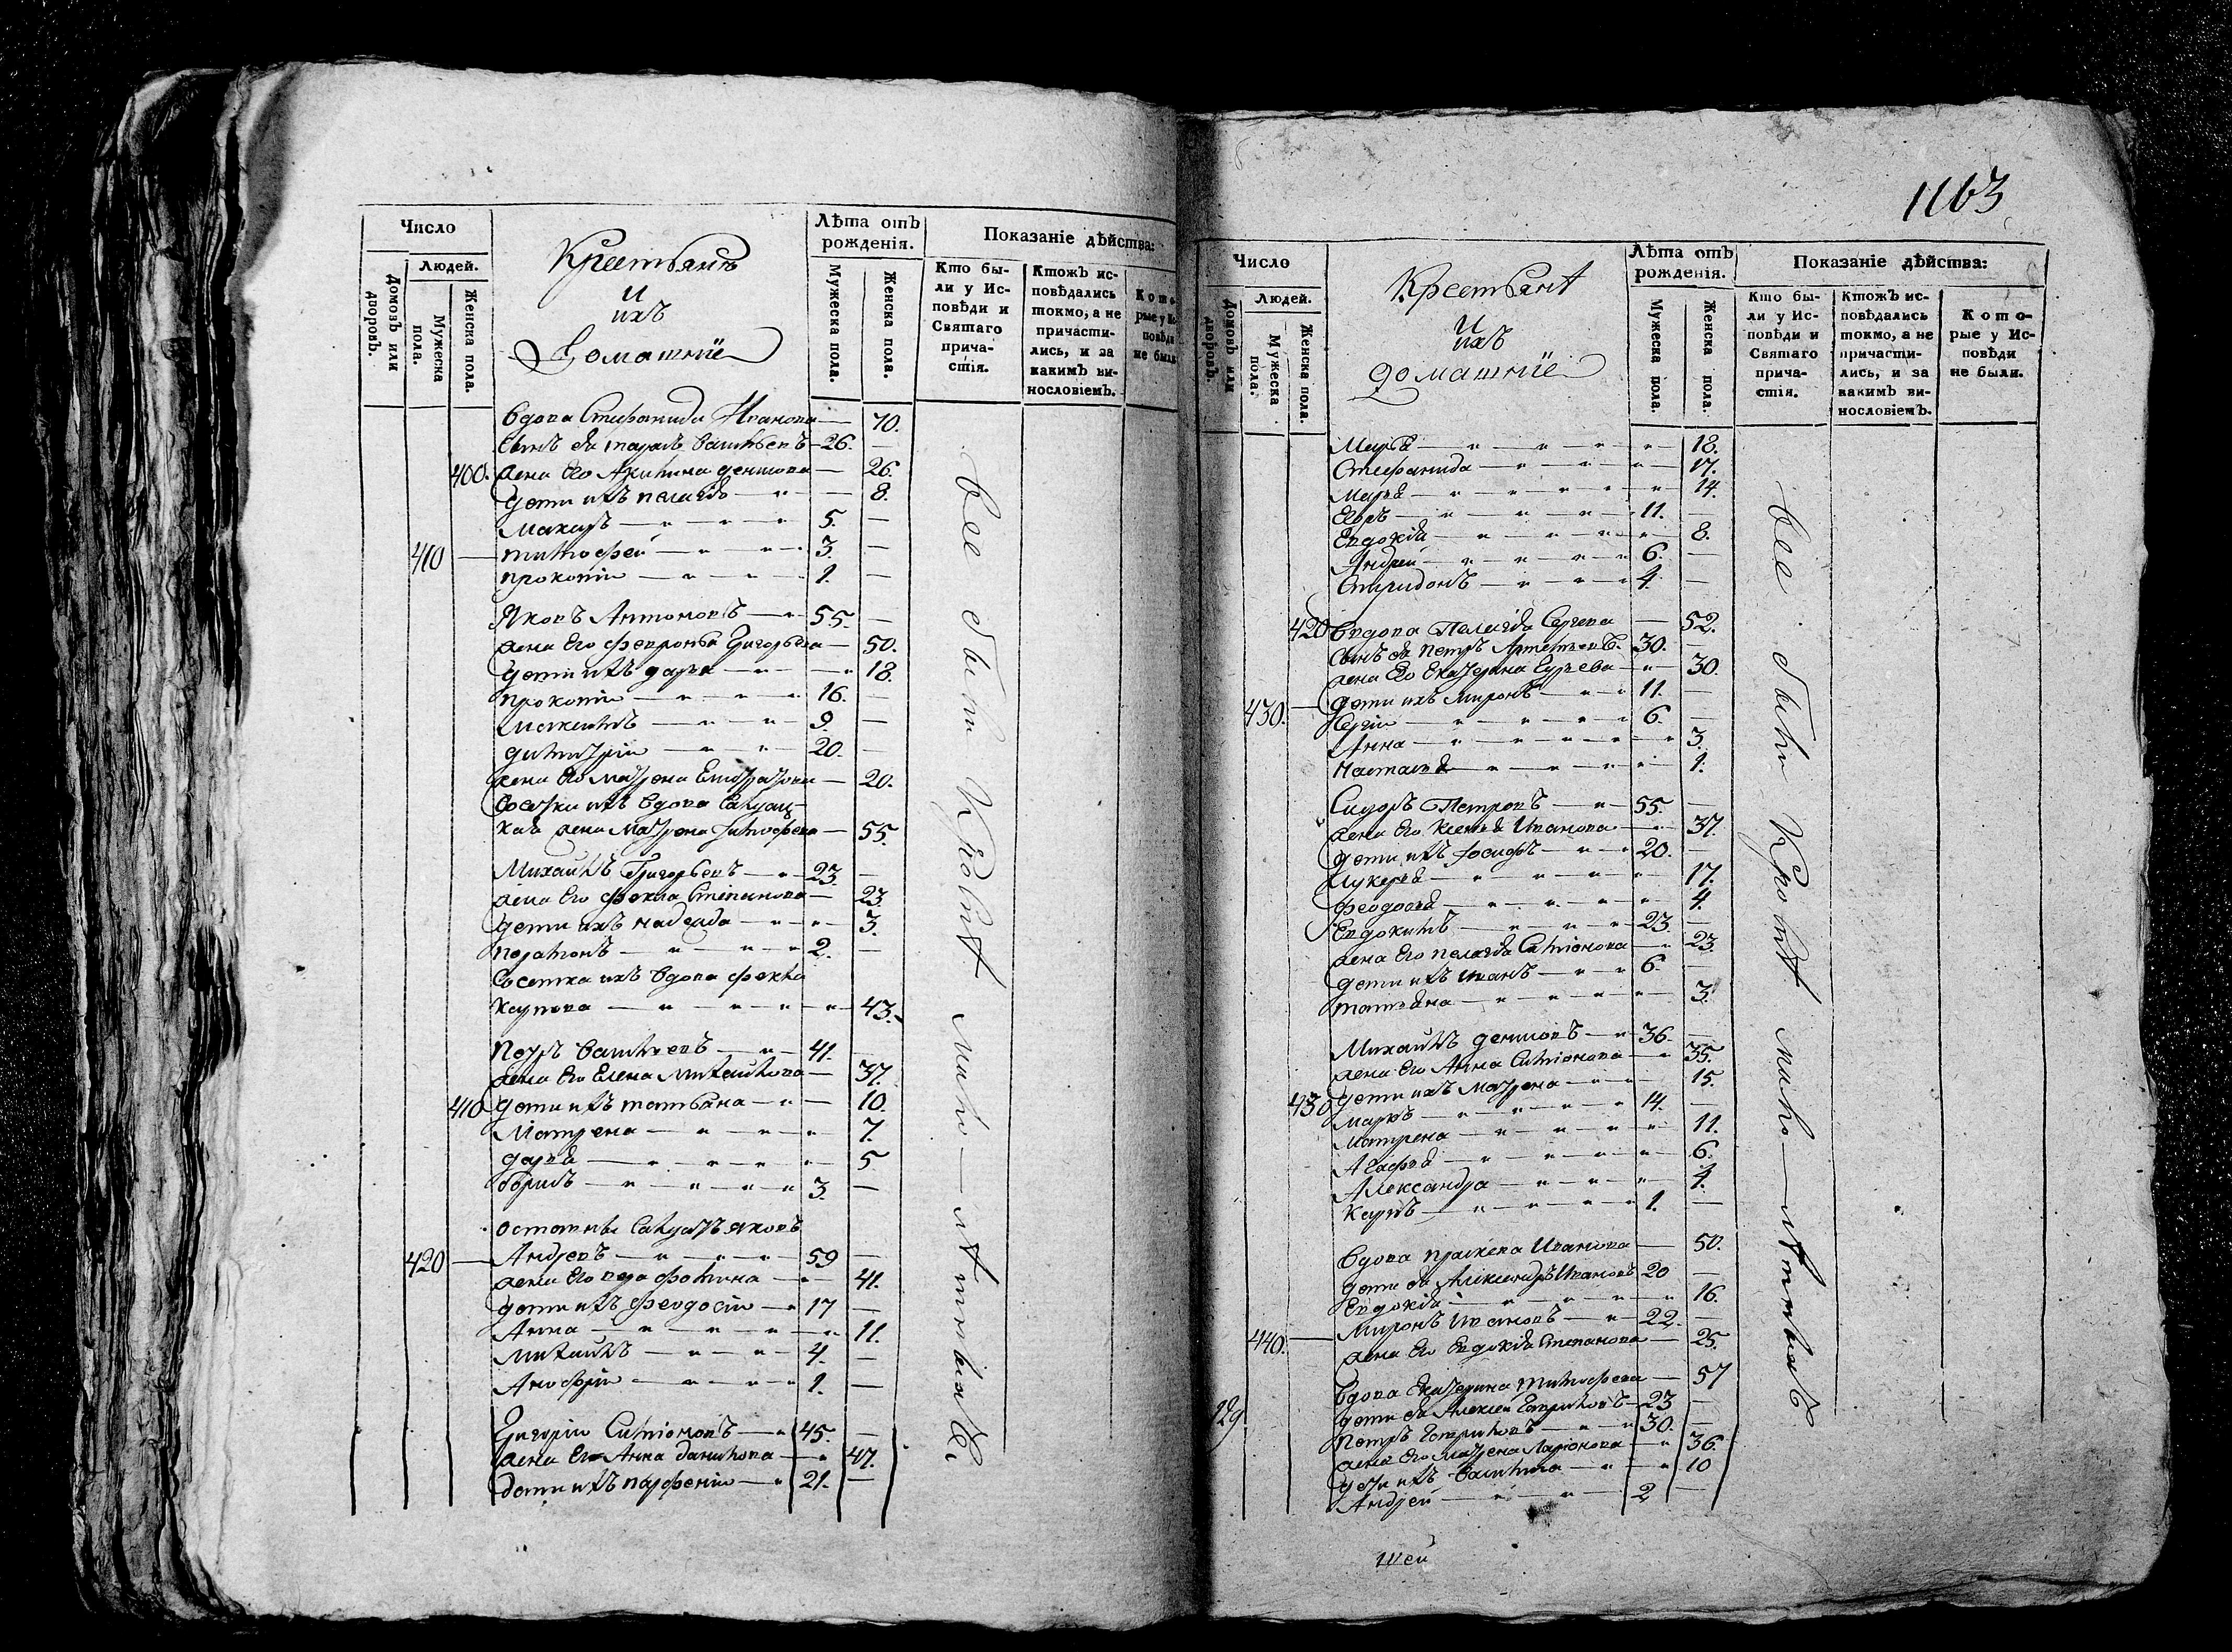 Число
Людей.
Домовъ или дворовъ.
Мужеска пола.
Женска пола.
Крестьянѣ
И
ихъ
Домашніе
Лѣта отъ рожденія.
Мужеска пола.
Женска пола.
Показаніе дѣйства:
Кто были у Исповѣди и Святаго причастія.
Ктожъ исповѣдались токмо, а не причастились, и за какимъ винословіемъ.
Которые у Исповѣди не были.
вдова Стефанида Иванова — 70.
сынъ ея тарасъ васильевъ — 26. —
400. жена его Акилина денисова — 26.
дети ихъ пелагея — 8.
макаръ — 5. —
410 — тимофей — 3. —
прокопiи — 1. —
Яковъ Антоновъ — 55. —
жена его февронья Григорьева — 50.
дети ихъ дарья — 18.
прокопiи — 16. —
максимъ — 9. —
димитрiи — 20. —
жена его матрена — 20.
вдова салдац-
кая жена матрена тимофеева — 55.
Михаилъ Григорьевъ — 23. —
жена его фекла Степанова — 23
дети ихъ надежда — 3.
платонъ — 2. —
ихъ вдова фекла
карпова — 43.
Петръ васильевъ — 41. —
жена его Елена михаилова — 37.
410 дети ихъ татьяна — 10.
Матрена — 7.
дарья — 5
борисъ — 3. —
салдатъ яковъ
420 — Андреевъ — 59 —
жена его — 41.
дети ихъ феодосiи — 17 —
Анна — 11.
михаилъ — 4. —
Анофрiи — 1. —
Григорiи Симioновъ — 45. —
жена его Анна данилова — 47.
дети ихъ парфенiи — 21. —
все были кроме мало-летныхъ
1163
Число
Людей.
Домовъ или дворовъ.
Мужеска пола.
Женска пола.
Крестьянѣ
И
ихъ
домашніе
Лѣта отъ рожденія.
Мужеска пола.
Женска пола.
Показаніе дѣйства:
Кто были у Исповѣди и Святаго причастія.
Ктожъ исповѣдались токмо, а не причастились, и за какимъ винословіемъ.
Которые у Исповѣди не были.
Марья — 18.
Стефанида — 17.
Марья — 14.
Егоръ — 11. —
Евдокiя — 8.
Андреи — 6. —
Спиридонъ — 4. —
420 вдова Пелагея Сергеева — 52.
сынъ ея петръ Артемьевъ. 30. —
жена его екатерина Гурьева — 30.
430. — дети ихъ миронъ — 11. —
Сергiи — 6. —
Анна — 3.
Настасья — 1.
Сидоръ Петровъ — 55. —
жена его ксенья Иванова — 37.
дети ихъ Iосифъ — 20. —
лукерья — 17.
феодосья — 4.
Евдокимъ — 23 —
жена его пелагея Симioнова — 23.
дети ихъ иванъ — 6. —
татьяна — 3.
Михаилъ денисовъ — 36. —
жена его Анна Симioнова — 35.
430 дети ихъ матрена — 15.
маркъ — 14. —
матрена — 11.
Агафья — 6.
Александра — 4.
Карпъ — 1. —
вдова Иванова — 50.
дети ея Александръ Ивановъ 20 —
Евдокiя — 16.
440. — миронъ Ивановъ — 22. —
жена его Евдокiя Степанова — 25.
129 вдова екатерина тимофеева — 57
дети ея Алексеи — 23 —
петръ — 30. —
жена его матрена Ларioнова — 36.
дети ихъ — 10
Андреи — 2 —
все были кроме мало-летныхъ
шей